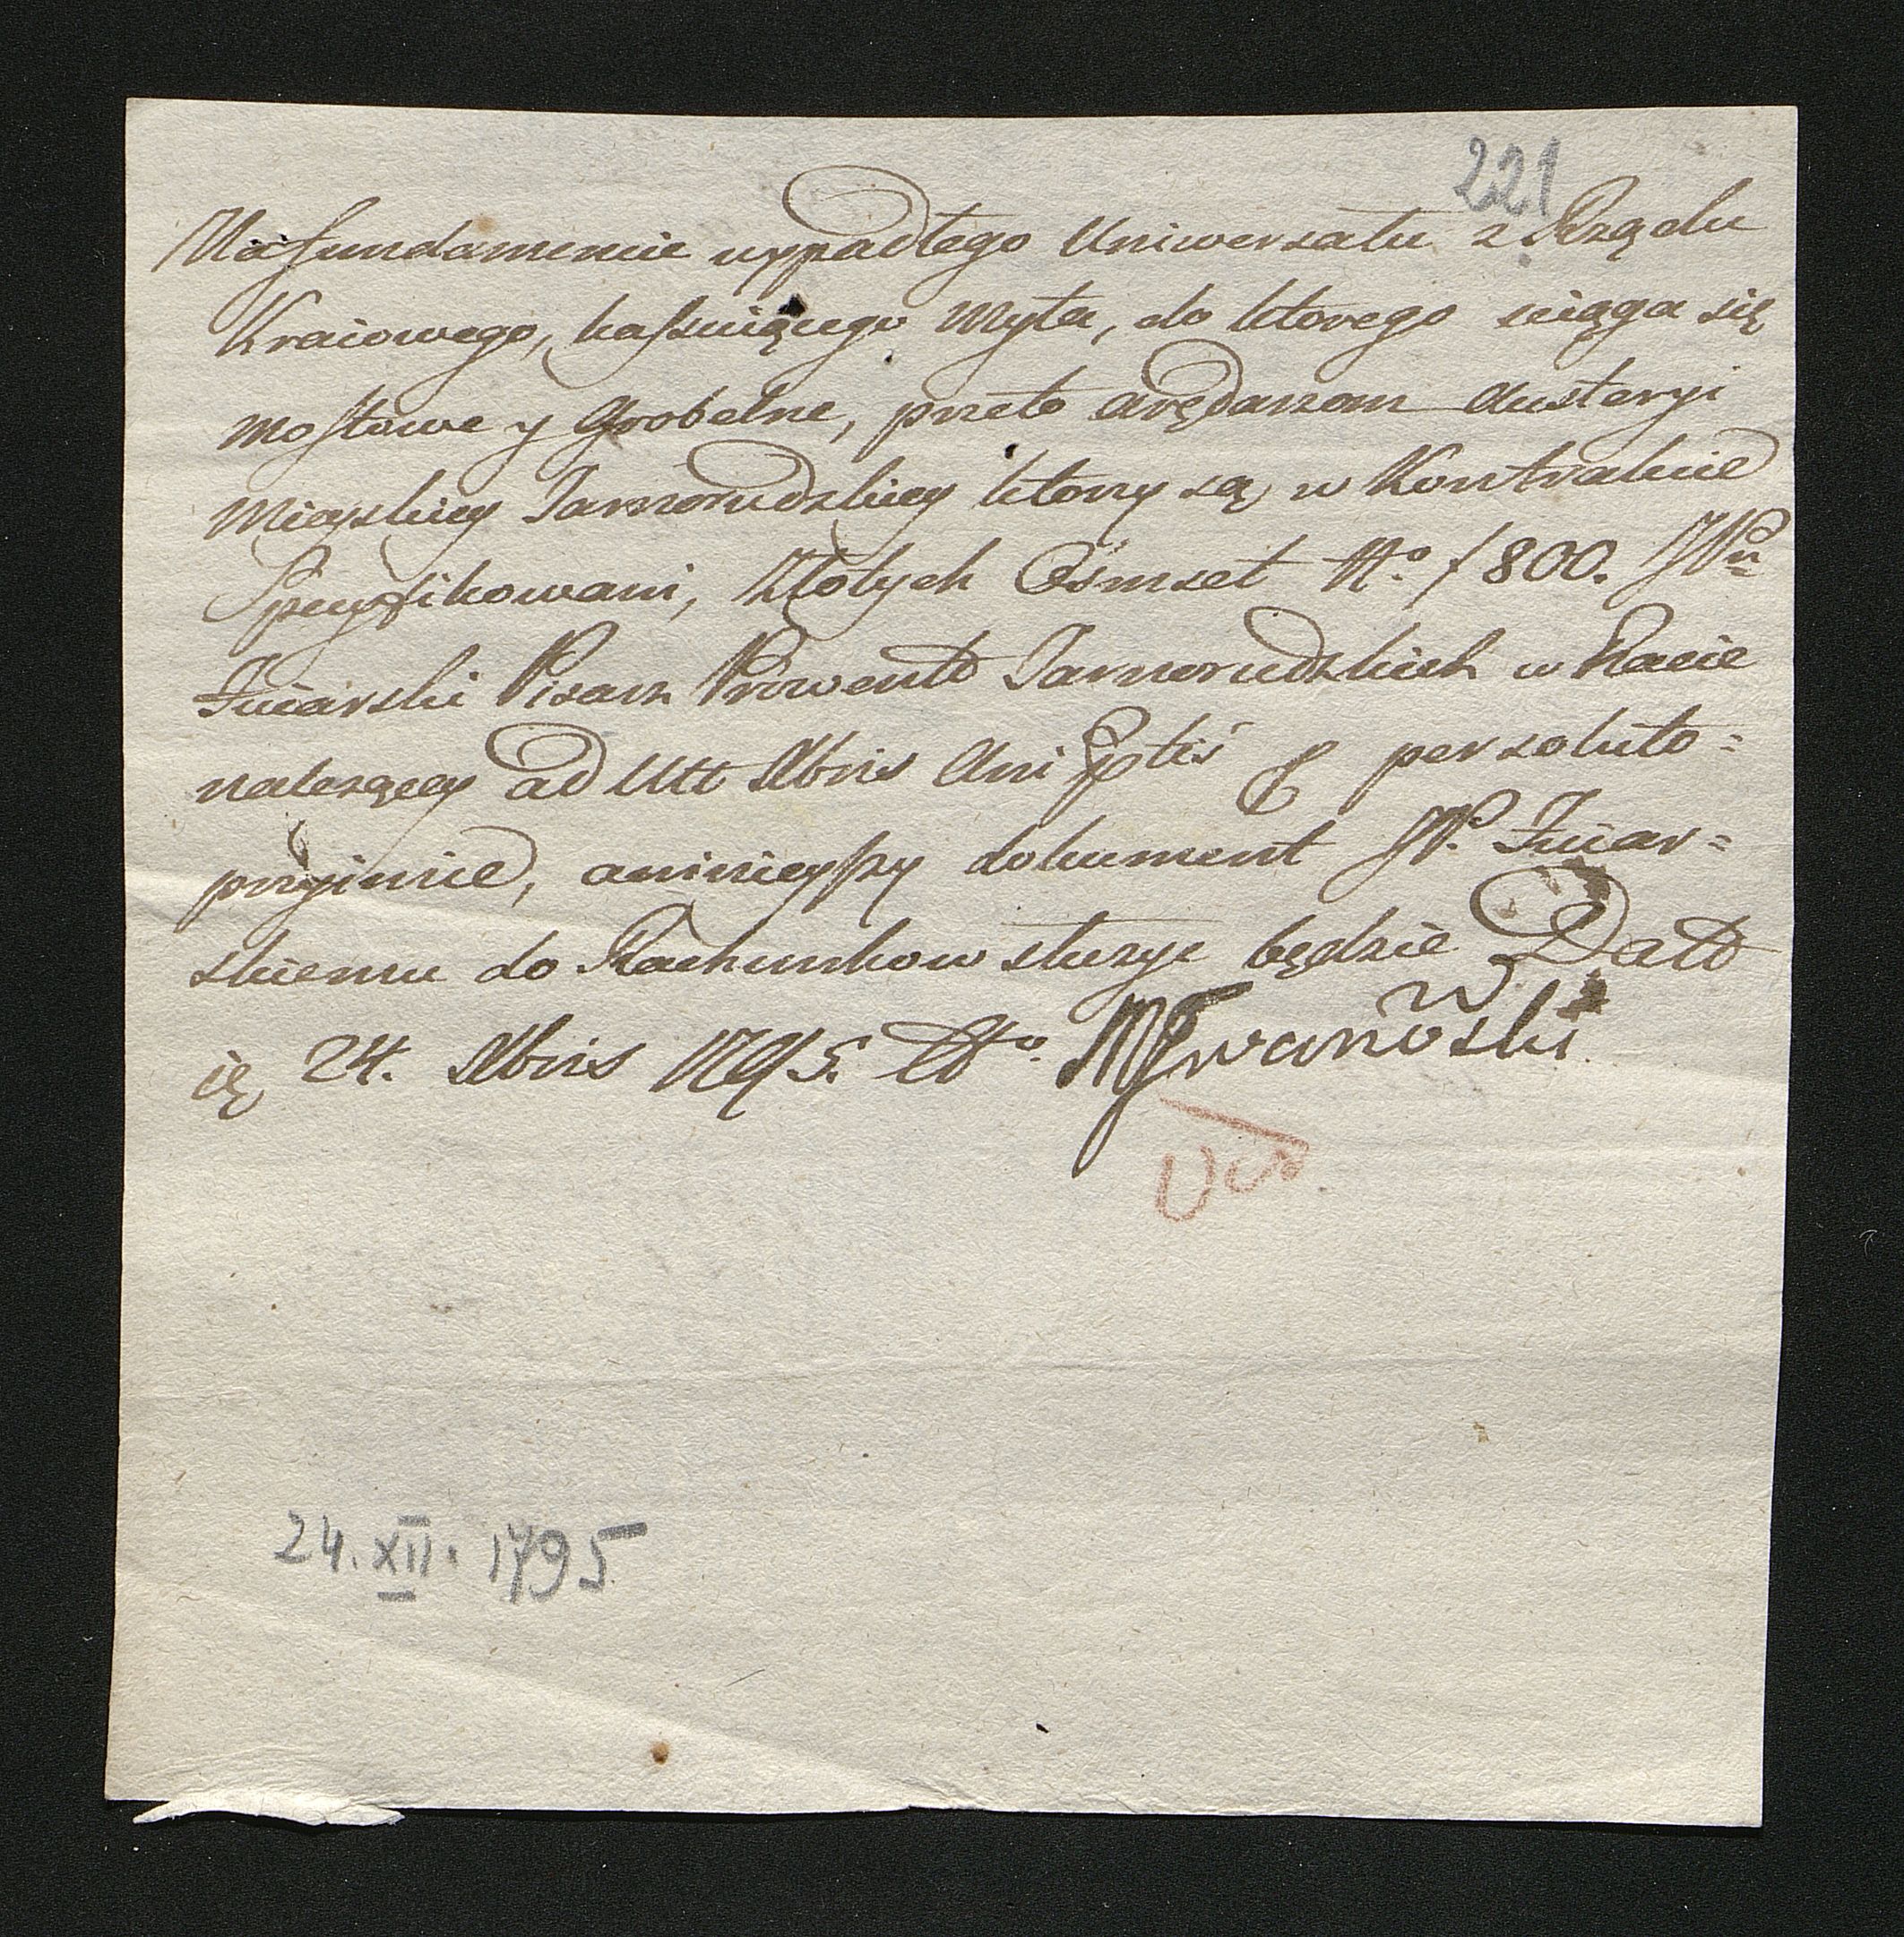 221
Na fundamencie wypadłego Uniwersału z Rządu
Kraiowego, kasuiącego Myta, do ktorego sciąga się
mostowe y Grobelne, przeto arędarzom Austeryi
Mieyskiey Jarmorudzkiey ktorzy są w Kontrakcie
Specyfikowani, Złotych Osmset No. f 800. JPn
Żuiarski Pisarz Prowentt Jarmorudzkich w Racie
należącey ad Ult Xbris Ani pntis p persoluto=
przyimie, aninieyszy dokument JP. Żuiar=
skiemu do Rachunkow służyc będzie Datt
ię 24. Xbris 1795. Ao. MIwanowski
Vid
24. XII. 1795